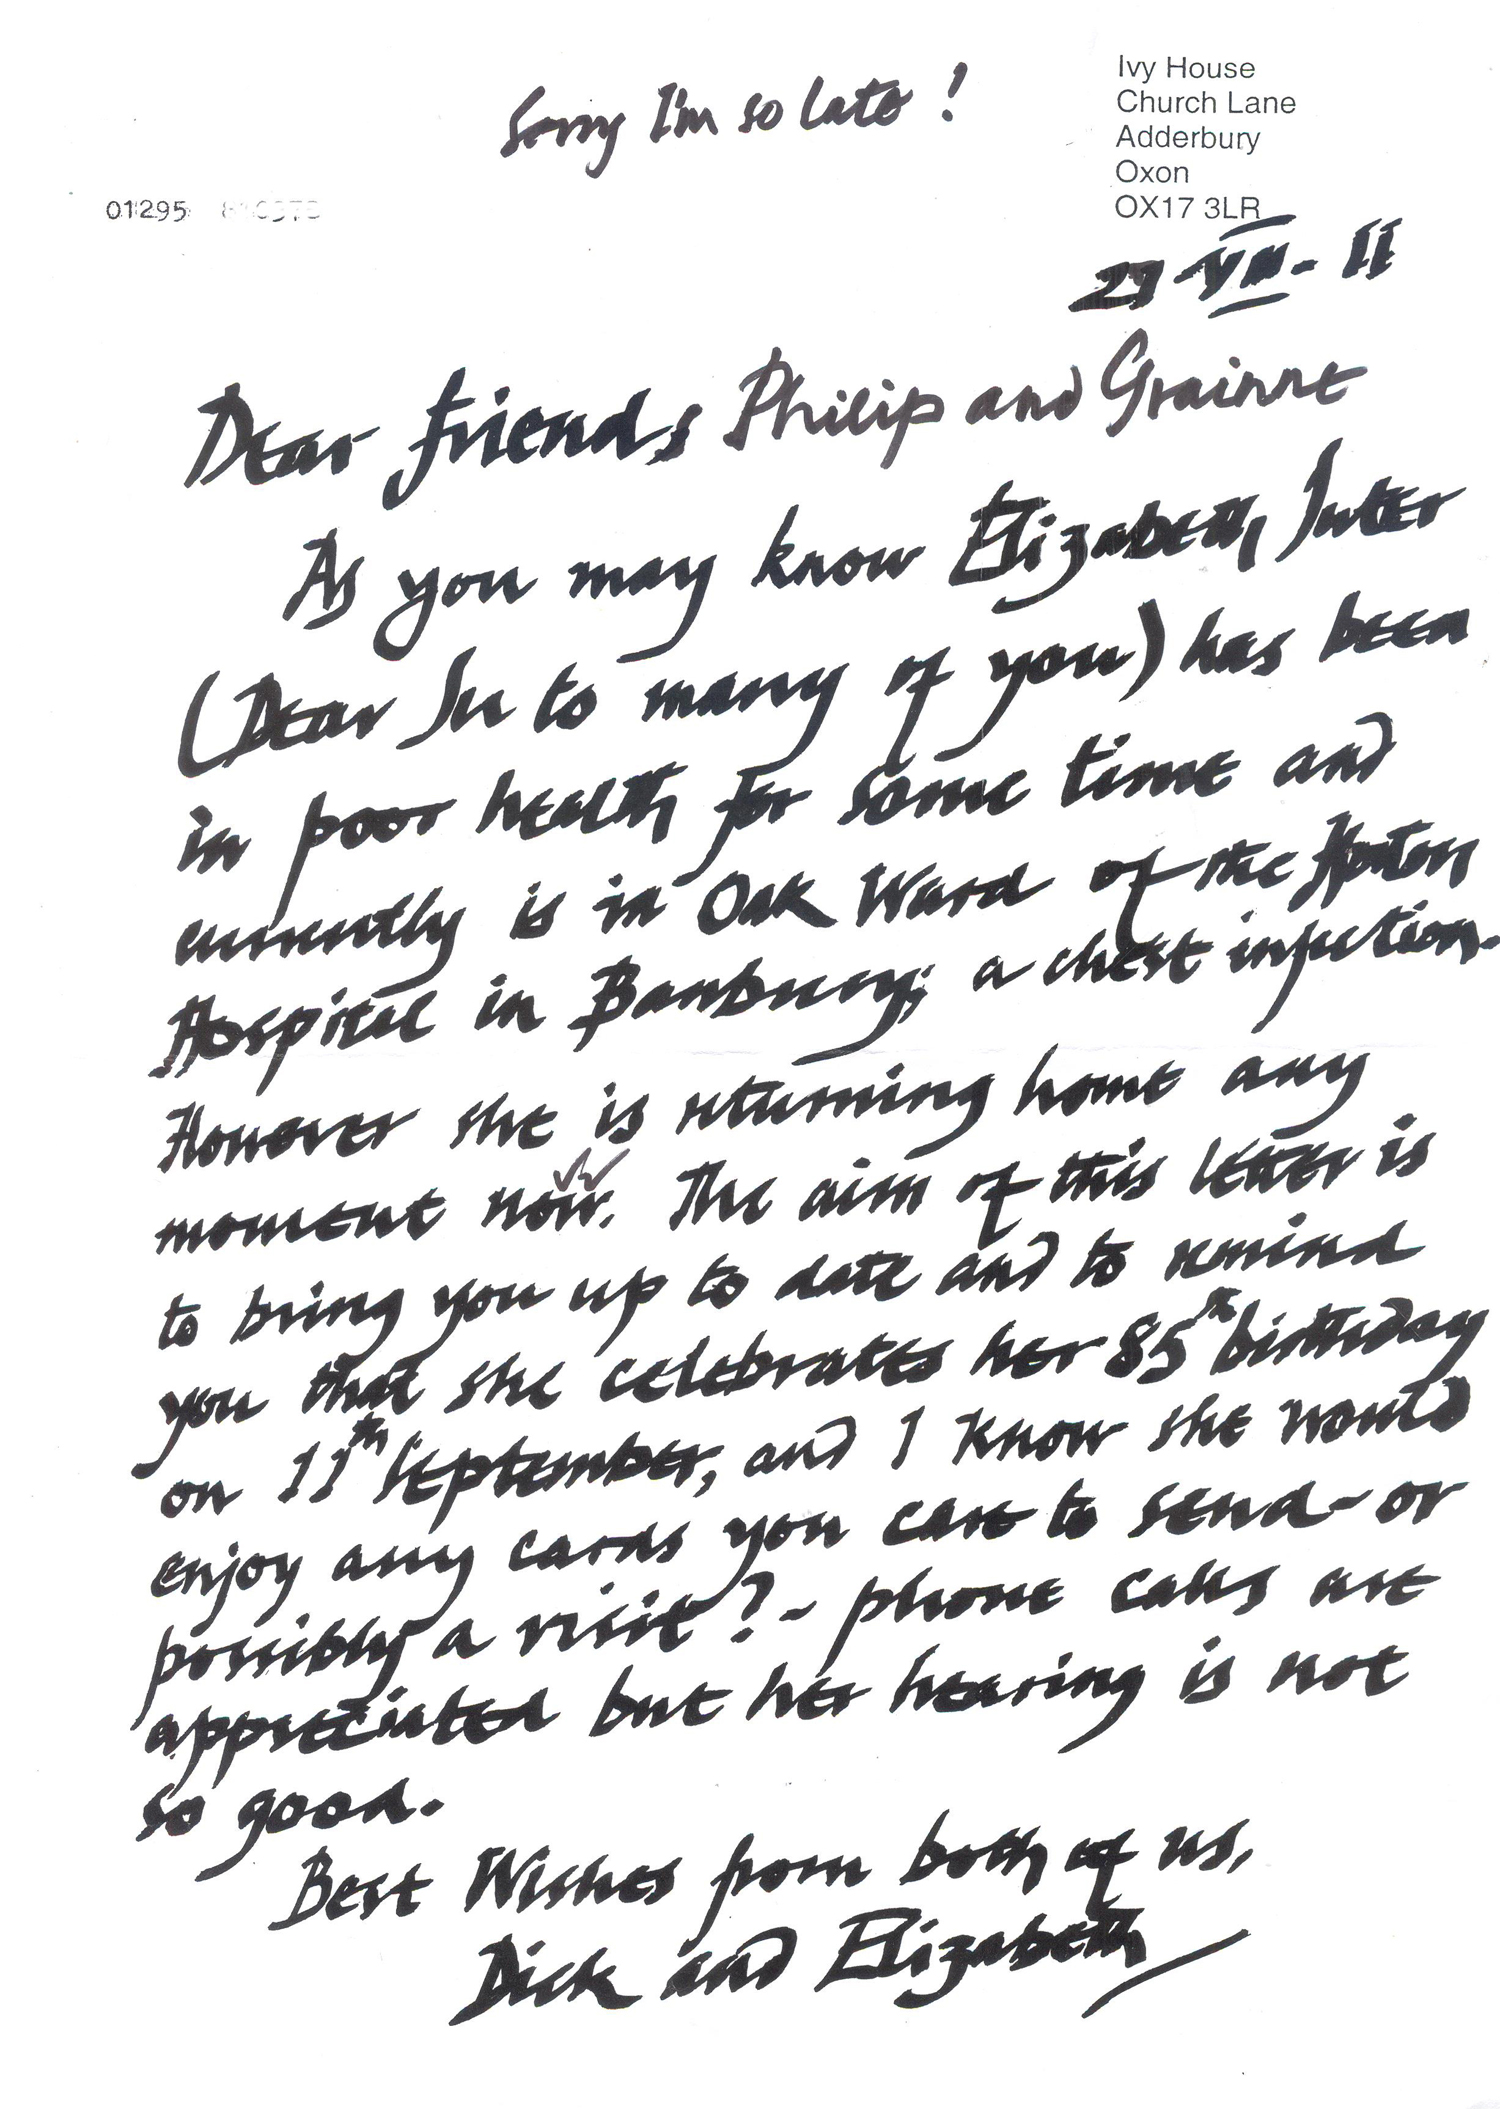 Sorry I'm so late!
Ivy House
Church Lane
Adderbury
Oxon
OX17 3LR
01295
27-VII-11
Dear friends Philip and Grainne
As you may know Elizabeth Suter
(Dear Su to many of you) has been
in poor health for some time and
currently is in Oak Ward of the Horton
Hospital in Banbury; a chest infection.
However she is returning home any
moment now. The aim of this letter is
to bring you up to date and to remind
you that she celebrates her 85th birthday
on 11th September, and I know she would
enjoy any cards you care to send - or
possibly a visit? - phone calls are
appreciated but her hearing is not
so good.
Best Wishes from both of us,
Dick and Elizabeth